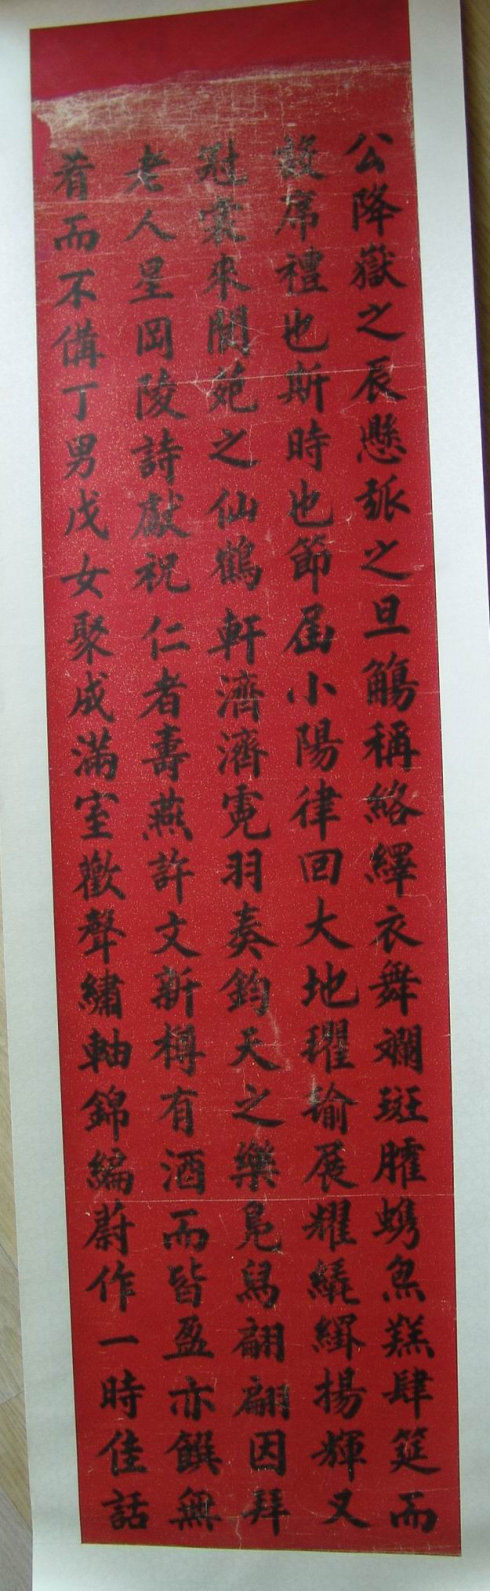 公降嶽之辰懸弧之旦觴稱絡繹衣舞斕斑臛蠵炰羔肆筵而
設席禮也斯時也節屆小陽律回大地瓘瑜展耀纊緝揚輝又
裳來閬苑之仙鶴軒濟濟霓羽奏鈞天之樂鳧舄翩翩因拜
老人星岡陵詩獻祝仁者壽燕許文新樽有酒而皆盈亦饌無
肴而不備丁男戊女聚成滿室歡聲繡軸錦編蔚作一時佳話